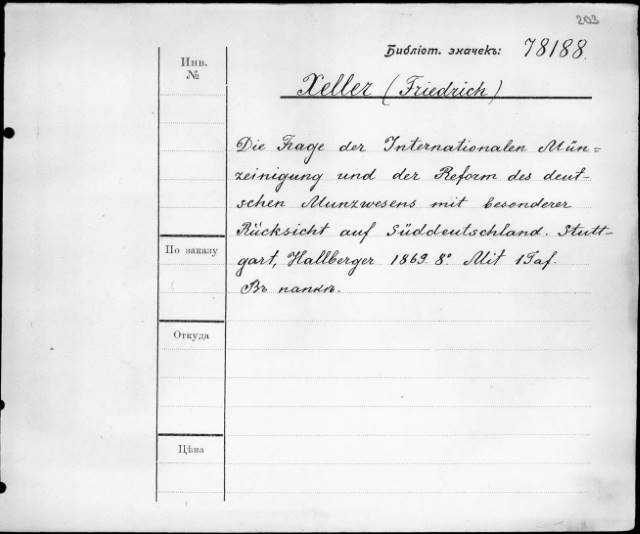 203
Библіот. значекъ: 78188.
Инв.
№
Xeller (Friedrich)
Die Frage der Internationalen Mün=
zeinigung und der Reform des deut-
schen Munzwesens mit besonderer
Rücksicht auf Süddeutschland. Stutt-
gart, Hallberger 1869. 8° Mit 1 Taf.
Въ папкѣ.
По заказу
Откуда
Цѣна